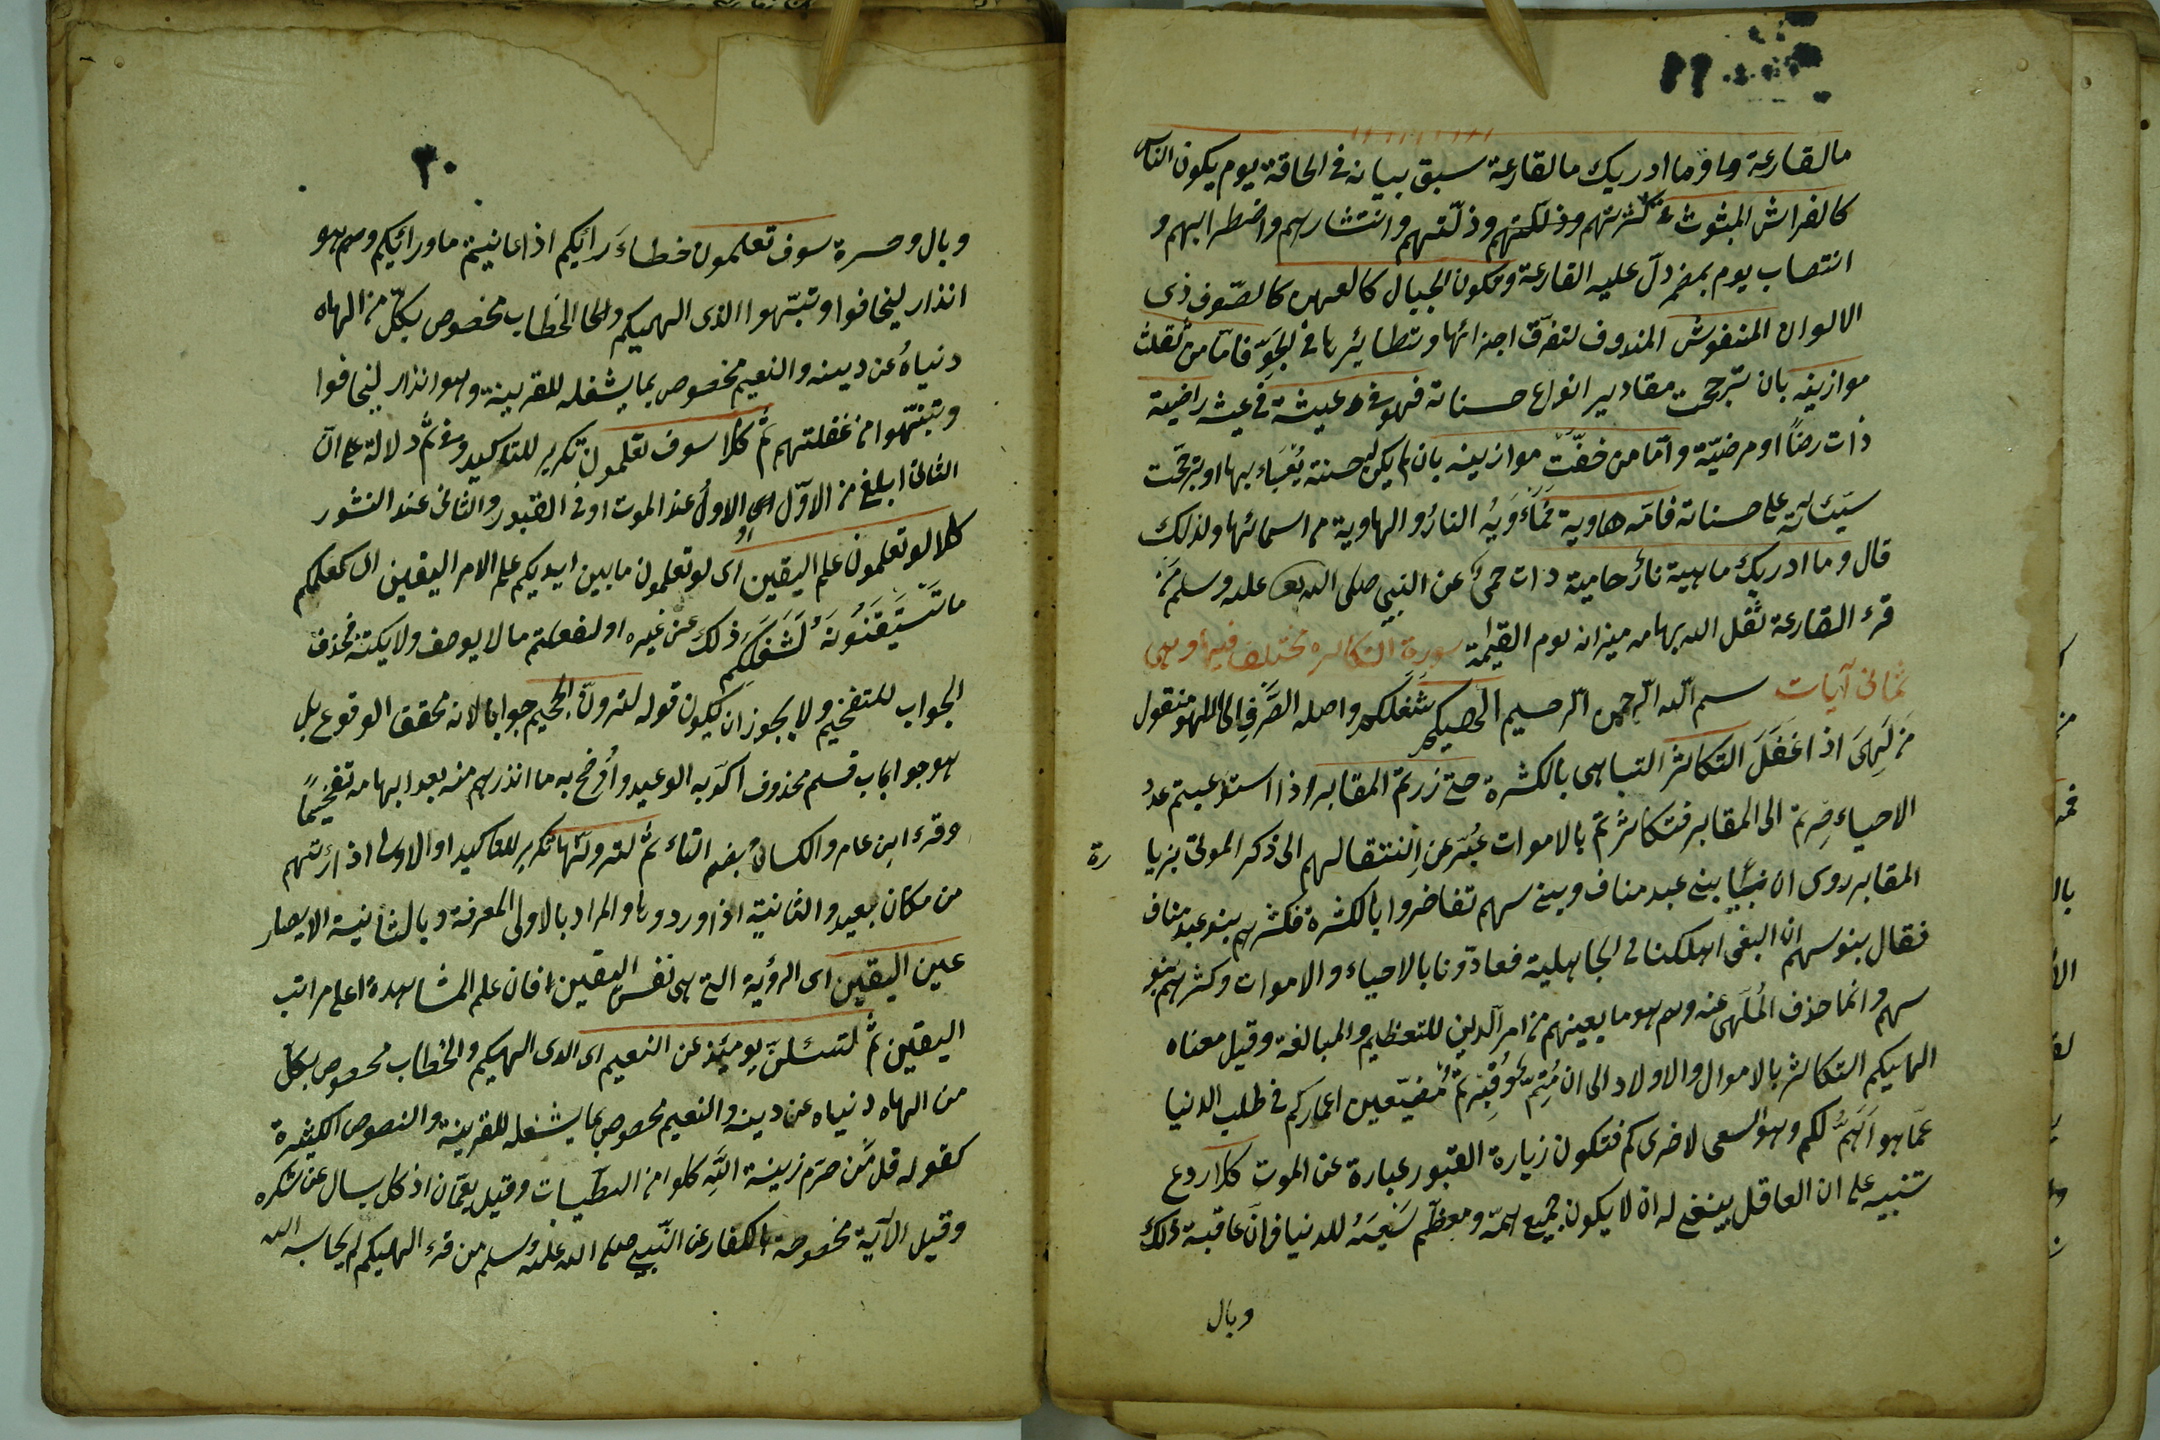 مالقارعة وما وما ادريك مالقارعة سبق بيانه فى الحاقة يوم يكون الناس
كالفراش المبثوث فى كثرتهم وذلتهم وذلتهم وانتشارهم واضطرابهم و
انتصاب يوم بمضمر دلّ عليه القارعة وتكون الجبال كالعهن كالصوف ذى
الالوان المنفوش المندوف لتفرّق اجزائها وتطائيرها فى الجوّ فامّا من ثقلت
موازينه بان ترجحت مقادير انواع حسناته فهو فى عيشة فى عيش راضية
ذات رضاً او مرضيّة وامّا من خفّت موازينه بان لم يكن له حسنة يُعْبَاء بها او ترجحت
سيّئاته على حسناته فامّه هاوية فمأويهُ النارُ والهاوية من اسمائها ولذلك
قال وما ادريك ماهية نارٌ حامية ذات حمىً عن النبى صلى الله عليه وسلم من
قرء القارعة ثقل الله بها ميزانه يوم القيمة سورة التكاثر مختلف فيها وهى
ثمانى آيات بسم الله الرحمن الرحيم الهيكم شغلكم واصله الصَّرف الى اللهو منقول
من لَهِىَ اذا غَفَلَ التكاثر التباهى بالكثرة حتى زرتم المقابر اذا استوعبتم عدد
الاحياء صِرتم الى المقابر فتكاثرتم بالاموات عُبّر عن انتقالهم الى ذكر الموتى بزيا
رة
المقابر روى ان بنى عبد مناف وبنى سهم تفاخروا بالكثرة فكثرهم بنو عبد مناف
فقال بنو سهم ان البغى اهلكنا فى الجاهلية فعادّونا بالاحياء والاموات وكثرهم بنو
سهم وانما حذف المُلْهَى عنه وهو ما يعينهم من امر الدين للتعظيم والمبالغة وقيل معناه
الهايكم التكاثر بالاموال والاولاد الى ان مُتّم وقُبِرتم مُضيّعين اعماركم فى طلب الدنيا
عمّا هو اَهَمُّ لكم وهو السعى لاخرى كم فتكون زيارة القبور عبارة عن الموت كلا ردع
تنبيه على ان العاقل ينبغى له ان لا يكون جميع همّه ومعظم سَعْيَهُ للدنيا فانّ عاقبة ذلك
وبال
٣٠
وبال وحسرة سوف تعلمون خطاءَ رائكم اذا عاينتم ماورائكم وهو
انذار ليخافوا وتنبّهوا الذى الهيكم والخطاب مخصوص بكلّ من الهاه
دنياهُ عن دينه والنعيم مخصوص بما يشغله للقرينة وهو انذار ليخافوا
وتبنّهوا من غفلتهم ثُمّ كلّا سوف تعلمون تكرير للتاكيد وفى ثُمَّ دلالة على انّ
الثانى ابلغ من الاوّل او الاولُ عند الموت او فى القبور والثانى عند النشور
كلا لو تعلمون علم اليقين اى لو تعلمون ما بين ايديكم علم الامر اليقين اى كعلمكم
ما تَسْتَيْقَنُونَهُ لَشَغَلكم ذلك عن غيره او لفعلتم ما لا يوصف ولا يكتنه فحذف
الجواب للتفخيم ولا يجوز ان يكون قوله لترونّ الجحيم جوابا لانه محقق الوقوع بل
هو جواب قسم محذوف اكّد به الوعيد واُوضح به ما انذرهم منه بعد ابهامه تفخيماً
وقرء ابن عامر والكسائى بضم التاء ثُمّ لترونّها تكرير للتاكيد او الاولى اذا رأتهم
من مكان بعيد والثانية اذا وردوها والمراد بالاولى المعرفة وبالثانية الابصار
عين اليقين اى الرؤية التى هى نفس اليقين فان علم المشاهدة اعلى مراتب
اليقين ثُمّ لتسئلنّ يومئذ عن النعيم اى الذى الهيكم والخطاب مخصوص بكلّ
من الهاه دنياه عن دينه والنعيم مخصوص بما يشغله للقرينة والنصوص الكثيرة
كقوله قل مَنْ حرّم زينة اللّه كلوا من الطيبات وقيل يعمّان اذ كل يسال عن شكره
وقيل الآية مخصوصة بالكفار عن النّبى صلى الله عليه وسلم من قرء الهيكم لم يحاسبه الله